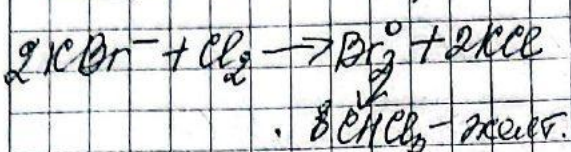 2KBr⁻ + Cl₂ → Br₂⁰ + 2KCl
в CHCl₃ - желт.